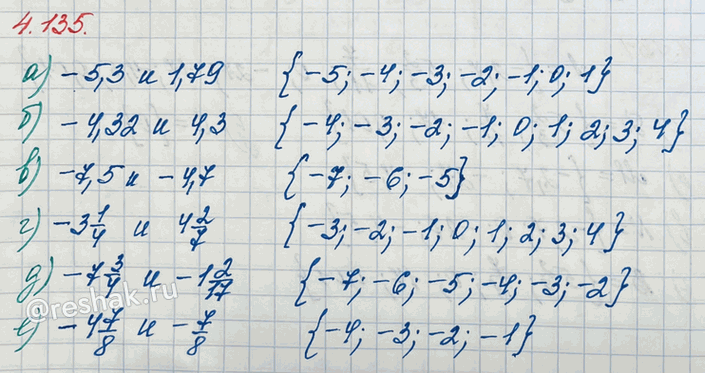 4.135.
а) -5,3 и 1,79 {-5; -4; -3; -2; -1; 0; 1}
б) -4,32 и 4,3 {-4; -3; -2; -1; 0; 1; 2; 3; 4}
в) -7,5 и -4,7 {-7; -6; -5}
г) -3 1/4 и 4 2/7 {-3; -2; -1; 0; 1; 2; 3; 4}
д) -7 3/4 и -1 2/17 {-7; -6; -5; -4; -3; -2}
@reshak.ru
е) -4 7/8 и -7/8 {-4; -3; -2; -1}